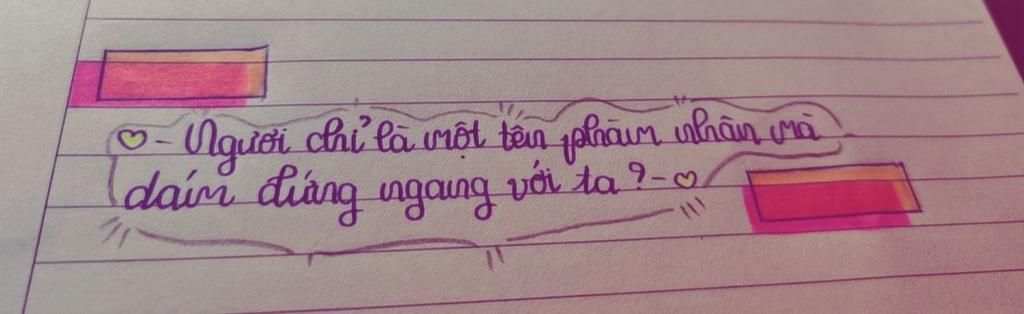 - Ngươi chỉ là một tên phàm nhân mà
dám đứng ngang với ta? -